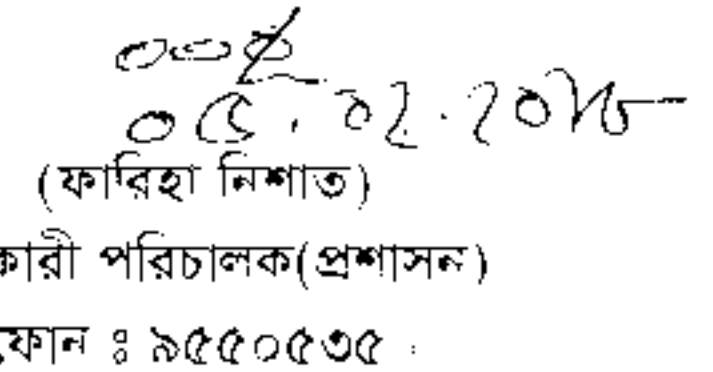 ০৫.০২.২০১৮
(ফারিহা নিশাত)
কারী পরিচালক(প্রশাসন)
ফোন ঃ ৯৫৫০৫৩৫